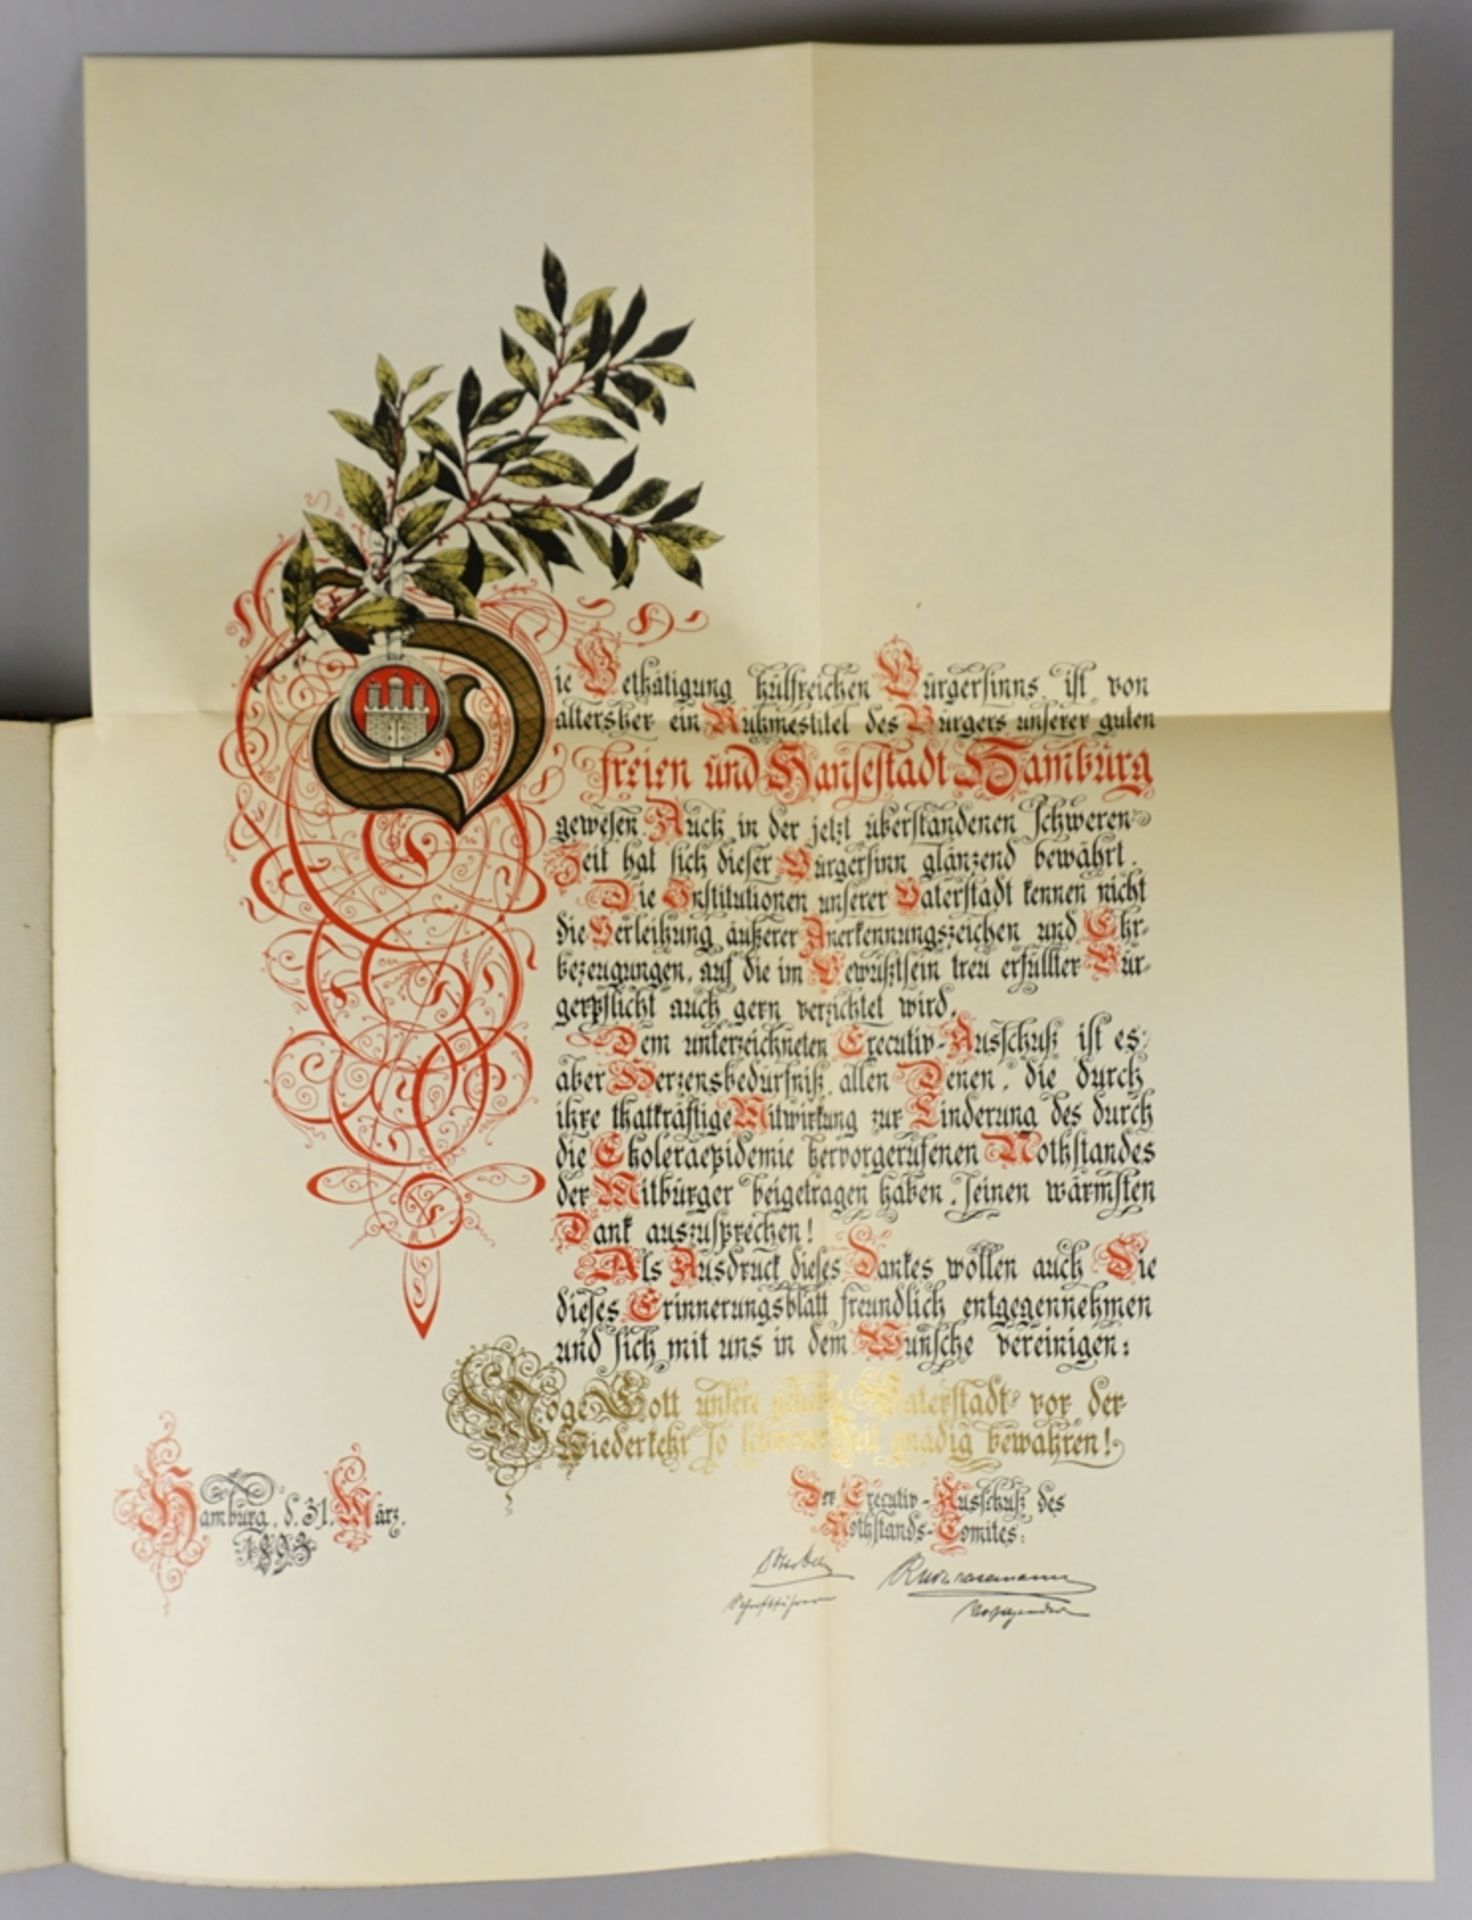 Die Bethätigung hülfreichen Bürgersinns ist von
altersher ein Ruhmestitel des Bürgers unserer guten
freien und Hansestadt Hamburg
gewesen. Auch in der jetzt überstandenen schweren
Zeit hat sich dieser Bürgersinn glänzend bewährt.
Die Institutionen unserer Vaterstadt kennen nicht
die Verleihung äußerer Anerkennungszeichen und Ehr-
bezeugungen, auf die im Bewußtsein treu erfüllter Bür-
gerpflicht auch gern verzichtet wird.
Dem unterzeichneten Executiv-Ausschuß ist es
aber Herzensbedürfniß, allen Denen, die durch
ihre thatkräftige Mitwirkung zur Linderung des durch
die Choleraepidemie hervorgerufenen Nothstandes
der Mitbürger beigetragen haben, seinen wärmsten
Dank auszusprechen!
Als Ausdruck dieses Dankes wollen auch Sie
dieses Erinnerungsblatt freundlich entgegennehmen
und sich mit uns in dem Wunsche vereinigen:
Möge Gott unsere Vaterstadt vor der
Wiederkehr so schwerer Zeit gnädig bewahren!
Hamburg, d. 31. März.
1893
Der Executiv-Ausschuß des
Nothstands-Comites:
Schriftführer
Vorsitzender